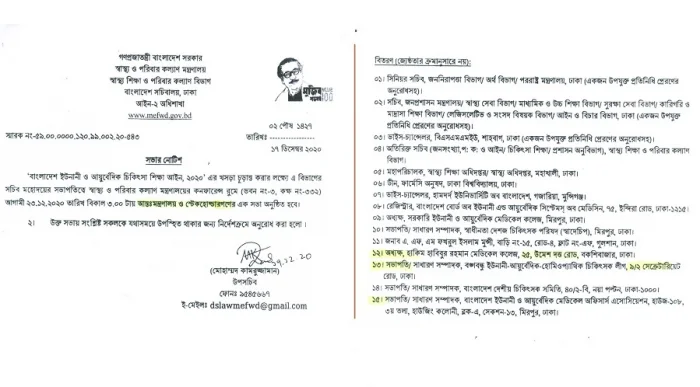 গণপ্রজাতন্ত্রী বাংলাদেশ সরকার
স্বাস্থ্য ও পরিবার কল্যাণ মন্ত্রণালয়
স্বাস্থ্য শিক্ষা ও পরিবার কল্যাণ বিভাগ
বাংলাদেশ সচিবালয়, ঢাকা
আইন-২ অধিশাখা
www.mefwd.gov.bd
মুজিব
০২ পৌষ ১৪২৭
স্মারক নং-৫৯.০০.০০০০.১২০.৯৯.০০২.২০-৫৪৩
তারিখঃ
১৭ ডিসেম্বর ২০২০
সভার নোটিশ
'বাংলাদেশ ইউনানী ও আয়ুর্বেদিক চিকিৎসা শিক্ষা আইন, ২০২০' এর খসড়া চূড়ান্ত করার লক্ষ্যে এ বিভাগের
সচিব মহোদয়ের সভাপতিত্বে স্বাস্থ্য ও পরিবার কল্যাণ মন্ত্রণালয়ের কনফারেন্স রুমে (ভবন নং-৩, কক্ষ নং-৩৩২)
আগামী ২৩.১২.২০২০ তারিখ বিকাল ৩.০০ টায় আন্তঃমন্ত্রণালয় ও স্টেকহোল্ডারগণের এক সভা অনুষ্ঠিত হবে।
২। উক্ত সভায় সংশ্লিষ্ট সকলকে যথাসময়ে উপস্থিত থাকার জন্য নির্দেশক্রমে অনুরোধ করা হলো।
(মোহাম্মদ কামরুজ্জামান)
উপসচিব
ফোনঃ ৯৫৪৫৬৬৭
ই-মেইলঃ dslawmefwd@gmail.com
বিতরণ (জ্যেষ্ঠতার ক্রমানুসারে নয়):
০১। সিনিয়র সচিব, জননিরাপত্তা বিভাগ/ অর্থ বিভাগ/ পররাষ্ট্র মন্ত্রণালয়, ঢাকা (একজন উপযুক্ত প্রতিনিধি প্রেরণের
অনুরোধসহ)।
০২। সচিব, জনপ্রশাসন মন্ত্রণালয়/ স্বাস্থ্য সেবা বিভাগ/ মাধ্যমিক ও উচ্চ শিক্ষা বিভাগ/ সুরক্ষা সেবা বিভাগ/ কারিগরি ও
মাদ্রাসা শিক্ষা বিভাগ/ লেজিসলেটিভ ও সংসদ বিষয়ক বিভাগ/ আইন ও বিচার বিভাগ, ঢাকা (একজন উপযুক্ত
প্রতিনিধি প্রেরণের অনুরোধসহ)।
০৩। ভাইস-চ্যান্সেলর, বিএসএমএমইউ, শাহবাগ, ঢাকা (একজন উপযুক্ত প্রতিনিধি প্রেরণের অনুরোধসহ)।
০৪। অতিরিক্ত সচিব (জনসংখ্যা, প: ক: ও আইন/ চিকিৎসা শিক্ষা/ প্রশাসন অনুবিভাগ), স্বাস্থ্য শিক্ষা ও পরিবার কল্যাণ
বিভাগ।
০৫। মহাপরিচালক, স্বাস্থ্য শিক্ষা অধিদপ্তর/ স্বাস্থ্য অধিদপ্তর, মহাখালী, ঢাকা।
০৬। ডীন, ফার্মেসি অনুষদ, ঢাকা বিশ্ববিদ্যালয়, ঢাকা।
০৭। ভাইস-চ্যান্সেলর, হামদর্দ ইউনিভার্সিটি অব বাংলাদেশ, গজারিয়া, মুন্সিগঞ্জ।
০৮। রেজিস্ট্রার, বাংলাদেশ বোর্ড অব ইউনানী এন্ড আয়ুর্বেদিক সিস্টেমস্ অব মেডিসিন, ৭৫, ইন্দিরা রোড, ঢাকা-১২১৫।
০৯। অধ্যক্ষ, সরকারি ইউনানী ও আয়ুর্বেদিক মেডিকেল কলেজ, মিরপুর, ঢাকা।
১০। সভাপতি/ সাধারণ সম্পাদক, স্বাধীনতা দেশজ চিকিৎসক পরিষদ (স্বাদেচিপ), মিরপুর, ঢাকা।
১১। জনাব এ, এফ, এম ফখরুল ইসলাম মুন্সী, বাড়ি নং-১৫, রোড-৪, ফ্লাট নং-এফ, গুলশান, ঢাকা।
১২। অধ্যক্ষ, হাকিম হাবিবুর রহমান মেডিকেল কলেজ, ২৫, উমেশ দত্ত রোড, বকশিবাজার, ঢাকা।
১৩। সভাপতি/ সাধারণ সম্পাদক, বঙ্গবন্ধু ইউনানী-আয়ুর্বেদিক-হোমিওপ্যাথিক চিকিৎসক লীগ, ৯/২ সেক্রেটারিয়েট
রোড, ঢাকা।
১৪। সভাপতি/ সাধারণ সম্পাদক, বাংলাদেশ দেশীয় চিকিৎসক সমিতি, ৪০/২-বি, নয়া পল্টন, ঢাকা-১০০০।
১৫। সভাপতি/ সাধারণ সম্পাদক, বাংলাদেশ ইউনানী ও আয়ুর্বেদিক মেডিকেল অফিসার্স এসোসিয়েশন, হাউজ-১০৮,
৩য় তলা, হাউজিং কলোনী, ব্লক-এ, সেকশন-১৩, মিরপুর, ঢাকা।